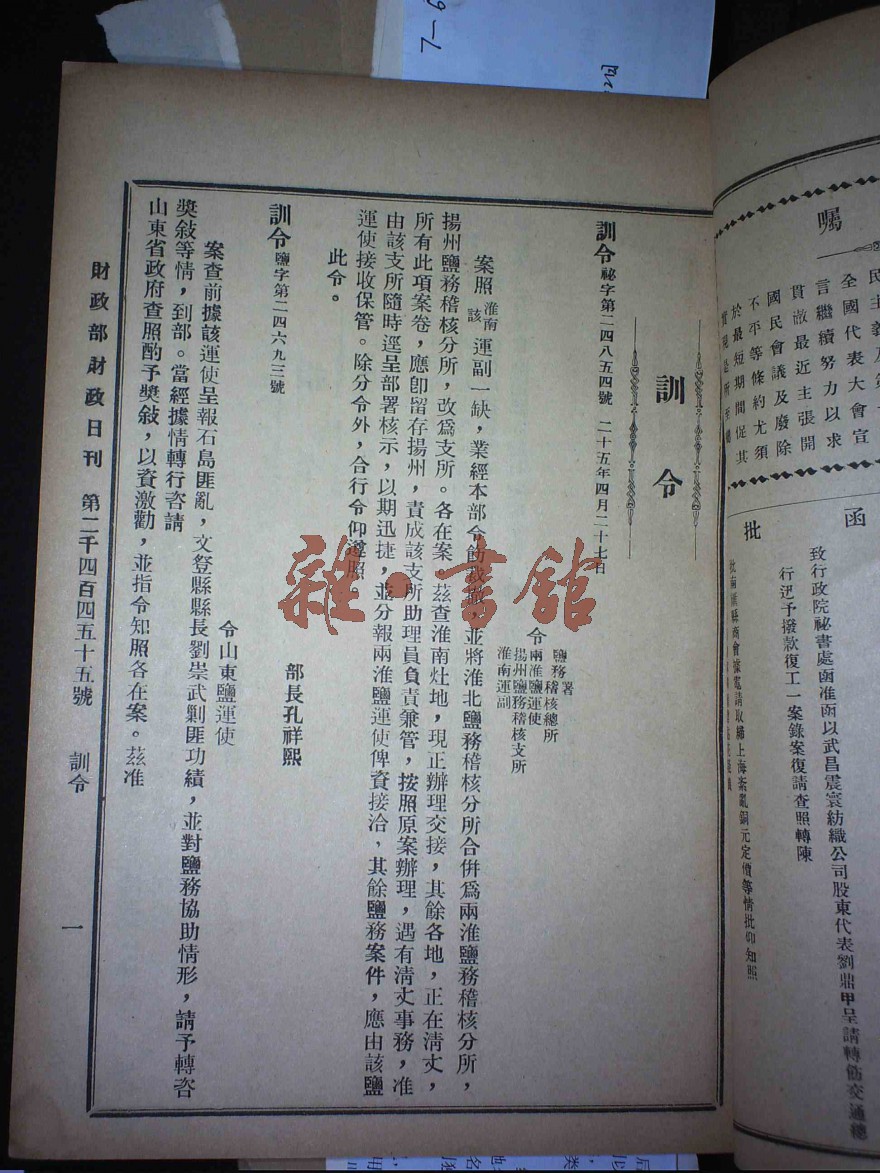 囑
民主義及第
全國代表大會宣
言繼續努力以求
貫澈最近主張開
國民會議及廢除
不平等條約尤須
於最短期間促其
實現是所至囑
函
致行政院祕書處函准函以武昌震寰紡織公司股東代表劉鼎甲呈請轉飭交通總
行迅予撥款復工一案錄案復請查照轉陳
批
訓令
訓令祕字第二四八五四號 二十五年四月二十七日
令
鹽務署
鹽務稽核總所
兩淮鹽運使
揚州鹽務稽核支所
淮南運副
案照淮南該運副一缺，業經本部令飭裁撤，並將淮北鹽務稽核分所合併爲兩淮鹽務稽核分所，
揚州鹽務稽核分所，改爲支所。各在案。茲查淮南灶地，現正辦理交接，其餘各地，正在清丈，
所有此項案卷，應卽留存揚州，責成該支所助理員負責兼管，按照原案辦理，遇有清丈事務，准
由該支所隨時逕呈部署核示，以期迅捷，並分報兩淮鹽運使俾資接洽，其餘鹽務案件，應由該鹽
運使接收保管。除分令外，合行令仰遵照
此令。
部長孔祥熙
訓令鹽字第二四六九三號
令山東鹽運使
案查前據該運使呈報石島匪亂，文登縣縣長劉崇武剿匪功績，並對鹽務協助情形，請予轉咨
獎敍等情，到部。當經據情轉行咨請
山東省政府查照酌予獎敍，以資激勸，並指令知照各在案。茲准
財政部財政日刊 第二千四百四五十五號 訓令 一
雜·書館